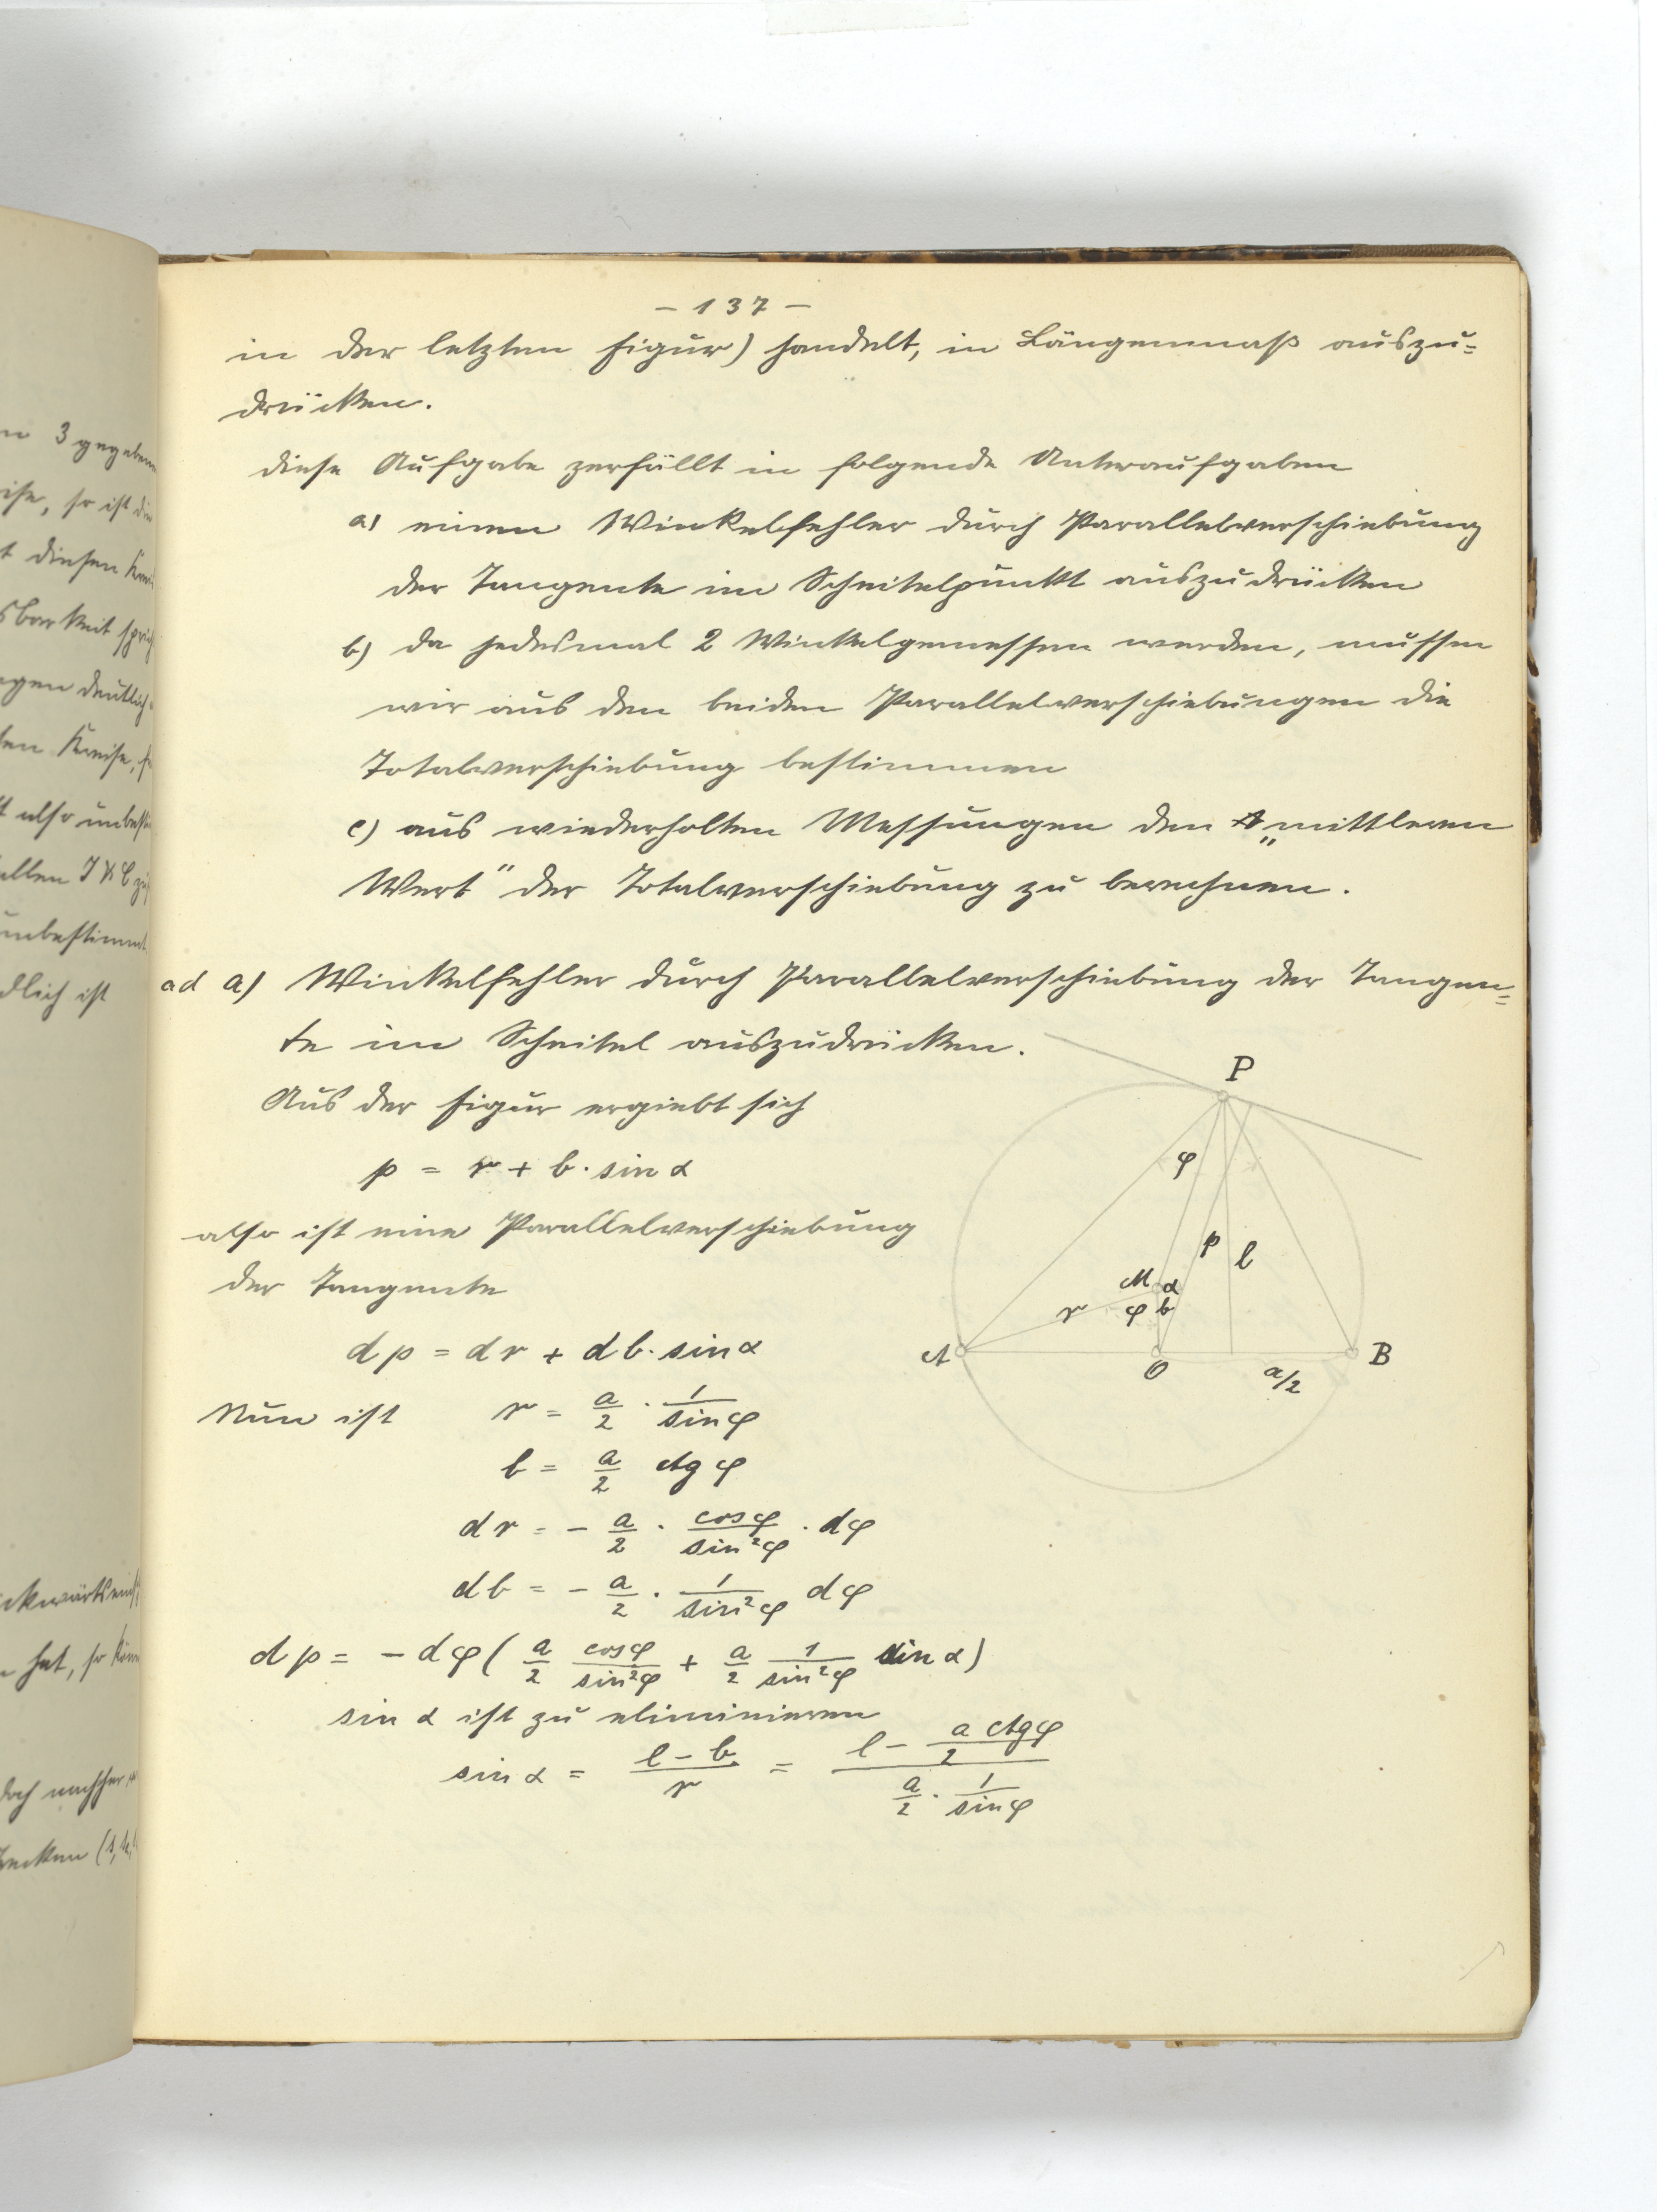 - 137 -
in der letzten Figur) handelt, in Längenmaß auszu=
drücken.
diese Aufgabe zerfällt in folgende Unteraufgaben
a) einen Winkelfehler durch Parallelverschiebung
der Tangente im Scheitelpunkt auszudrücken
b) da jedesmal 2 Winkel gemessen werden, müssen
wir aus den beiden Parallelverschiebungen die
Totalverschiebung bestimmen
c) aus wiederholten Messungen den „mittleren
Wert" der Totalverschiebung zu berechnen.
ad a) Winkelfehler durch Parallelverschiebung der Tangen=
te im Scheitel auszudrücken.
Aus der Figur ergiebt sich
p = r + b · sin α
also ist eine Parallelverschiebung
der Tangente
dp = dr + db · sin α
Nun ist r = a/2 · 1/sin φ
b = a/2 ctg φ
dr = - a/2 · cos φ/sin²φ · dφ
db = - a/2 · 1/sin²φ dφ
dp = - dφ ( a/2 cos φ/sin²φ + a/2 1/sin²φ sin α)
sin α ist zu eliminieren
sin α = (l - b)/r = (l - a ctg φ/2)/(a/2 · 1/sin φ)
P
φ
p
l
M α
r φ b
A
O
a/2
B
3 gegeben
so ist die
t diesen
sbarkeit
gen deutlich
ten Kreise,
t also unbest
unbestimmt
dlich ist
hat, so
doch